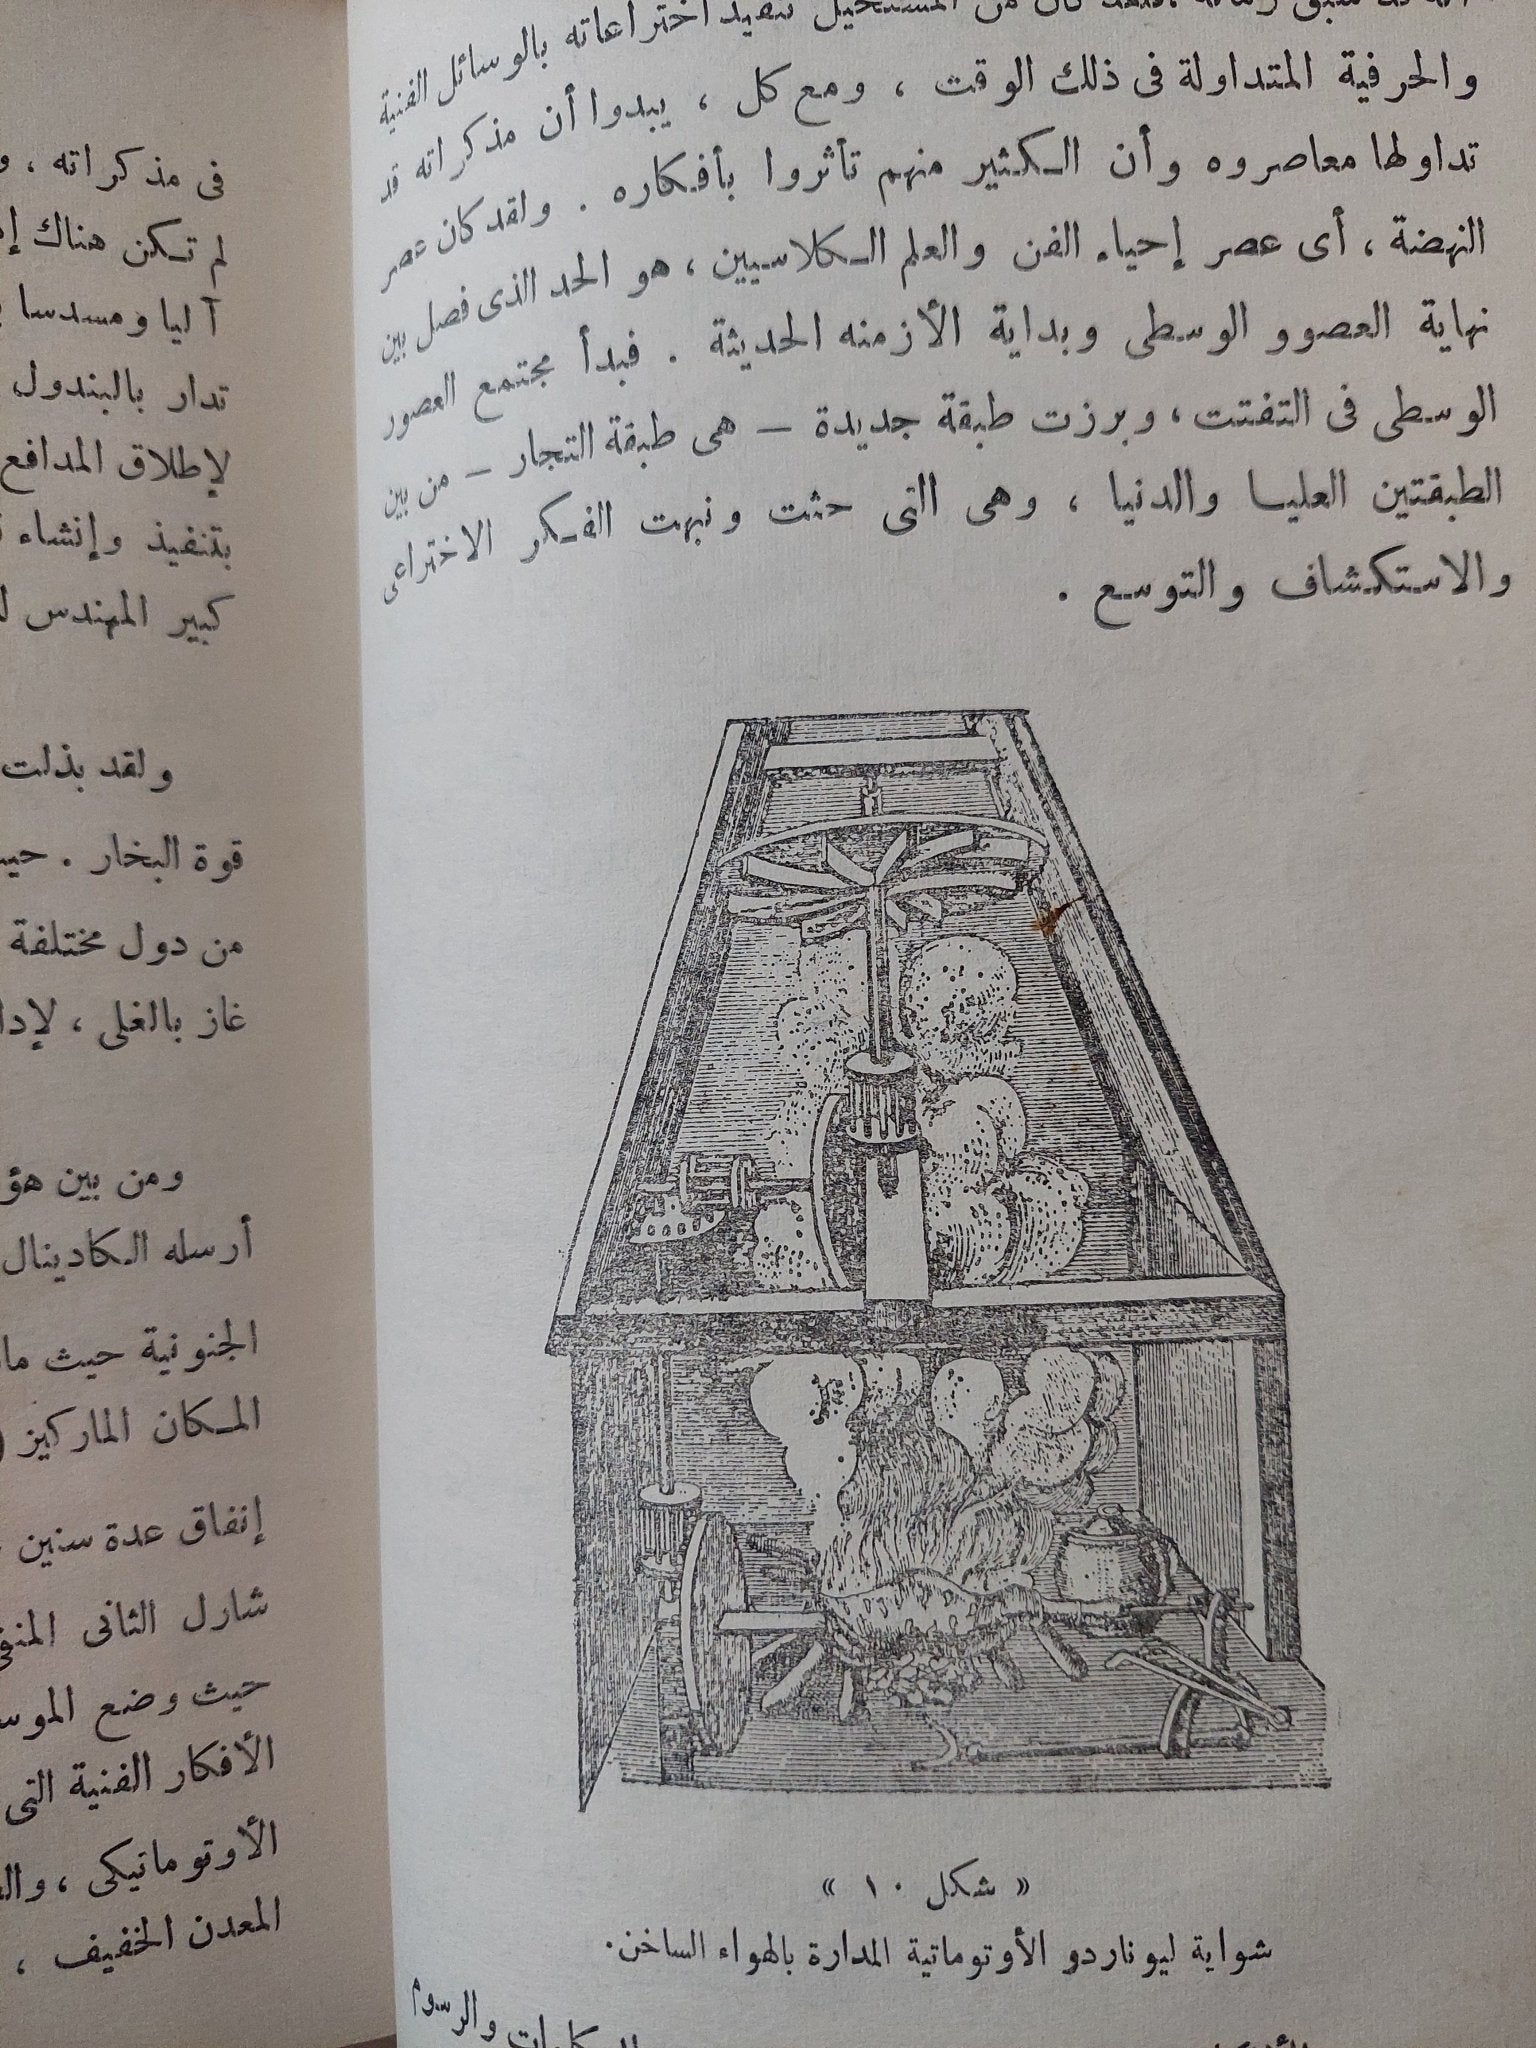 المستحيل تنفيذ اختراعاته بالوسائل الفنية
والحرفية المتداولة فى ذلك الوقت ، ومع كل ، يبدوا أن مذكراته قد
تداولها معاصروه وأن الكثير منهم تأثروا بأفكاره . ولقد كان عصر
النهضة ، أى عصر إحياء الفن والعلم الكلاسيين ، هو الحد الذى فصل بين
نهاية العصوو الوسطى وبداية الأزمنه الحديثة . فبدأ مجتمع العصور
الوسطى فى التفتت ، وبرزت طبقة جديدة – هى طبقة التجار – من بين
الطبقتين العليا والدنيا ، وهى التى حثت ونبهت الفكر الاختراعى
والاستكشاف والتوسع .
« شكل ١٠ »
شواية ليوناردو الأوتوماتية المدارة بالهواء الساخن.
والرسوم
فى مذكراته ،
لم تكن هناك
آليا ومسدسا
تدار بالبندول
لإطلاق المدافع
بتنفيذ وإنشاء
كبير المهندس
ولقد بذلت
قوة البخار .
من دول مختلفة
غاز بالغلى ،
ومن بين
أرسله الكادينال
الجنونية حيث
المكان الماركيز
إنفاق عدة سنين
شارل الثانى
حيث وضع
الأفكار الفنية التى
الأوتوماتيكى ،
المعدن الخفيف ،